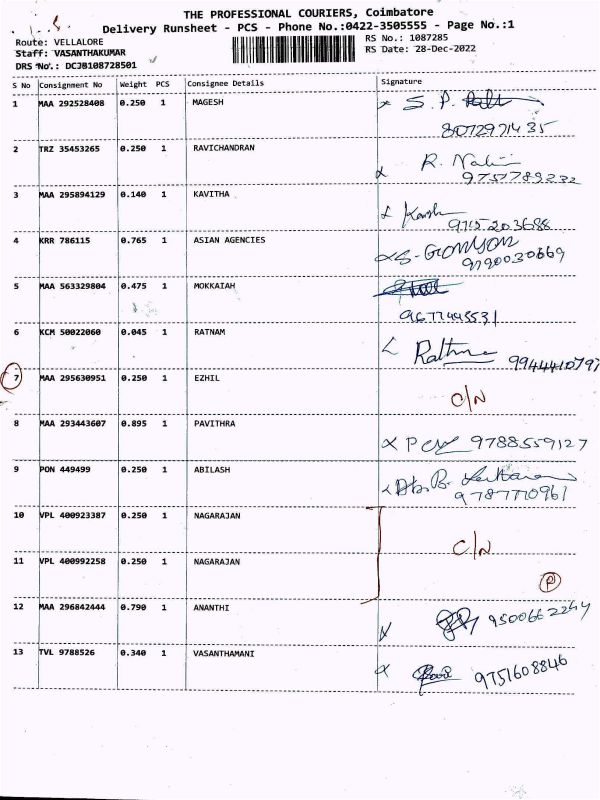 THE PROFESSIONAL COURIERS, Coimbatore
Delivery Runsheet - PCS - Phone No.:0422-3505555 - Page No.:1
Route: VELLALORE RS No.: 1087285
Staff: VASANTHAKUMAR RS Date: 28-Dec-2022
DRS No.: DCJB108728501
S No Consignment No Weight PCS Consignee Details Signature
1 MAA 292528408 0.250 1 MAGESH S. P.
8072971435
2 TRZ 35453265 0.250 1 RAVICHANDRAN R.
9757789232
3 MAA 295894129 0.140 1 KAVITHA
9715203688
4 KRR 786115 0.765 1 ASIAN AGENCIES
9790030669
5 MAA 563329804 0.475 1 MOKKAIAH
9677445531
6 KCM 50022060 0.045 1 RATNAM
9944410797
7 MAA 295630951 0.250 1 EZHIL C/N
8 MAA 293443607 0.895 1 PAVITHRA 9788559127
9 PON 449499 0.250 1 ABILASH
9787770961
10 VPL 400923387 0.250 1 NAGARAJAN
C/N
11 VPL 400992258 0.250 1 NAGARAJAN
P
12 MAA 296842444 0.790 1 ANANTHI
13 TVL 9788526 0.340 1 VASANTHAMANI 9751608846